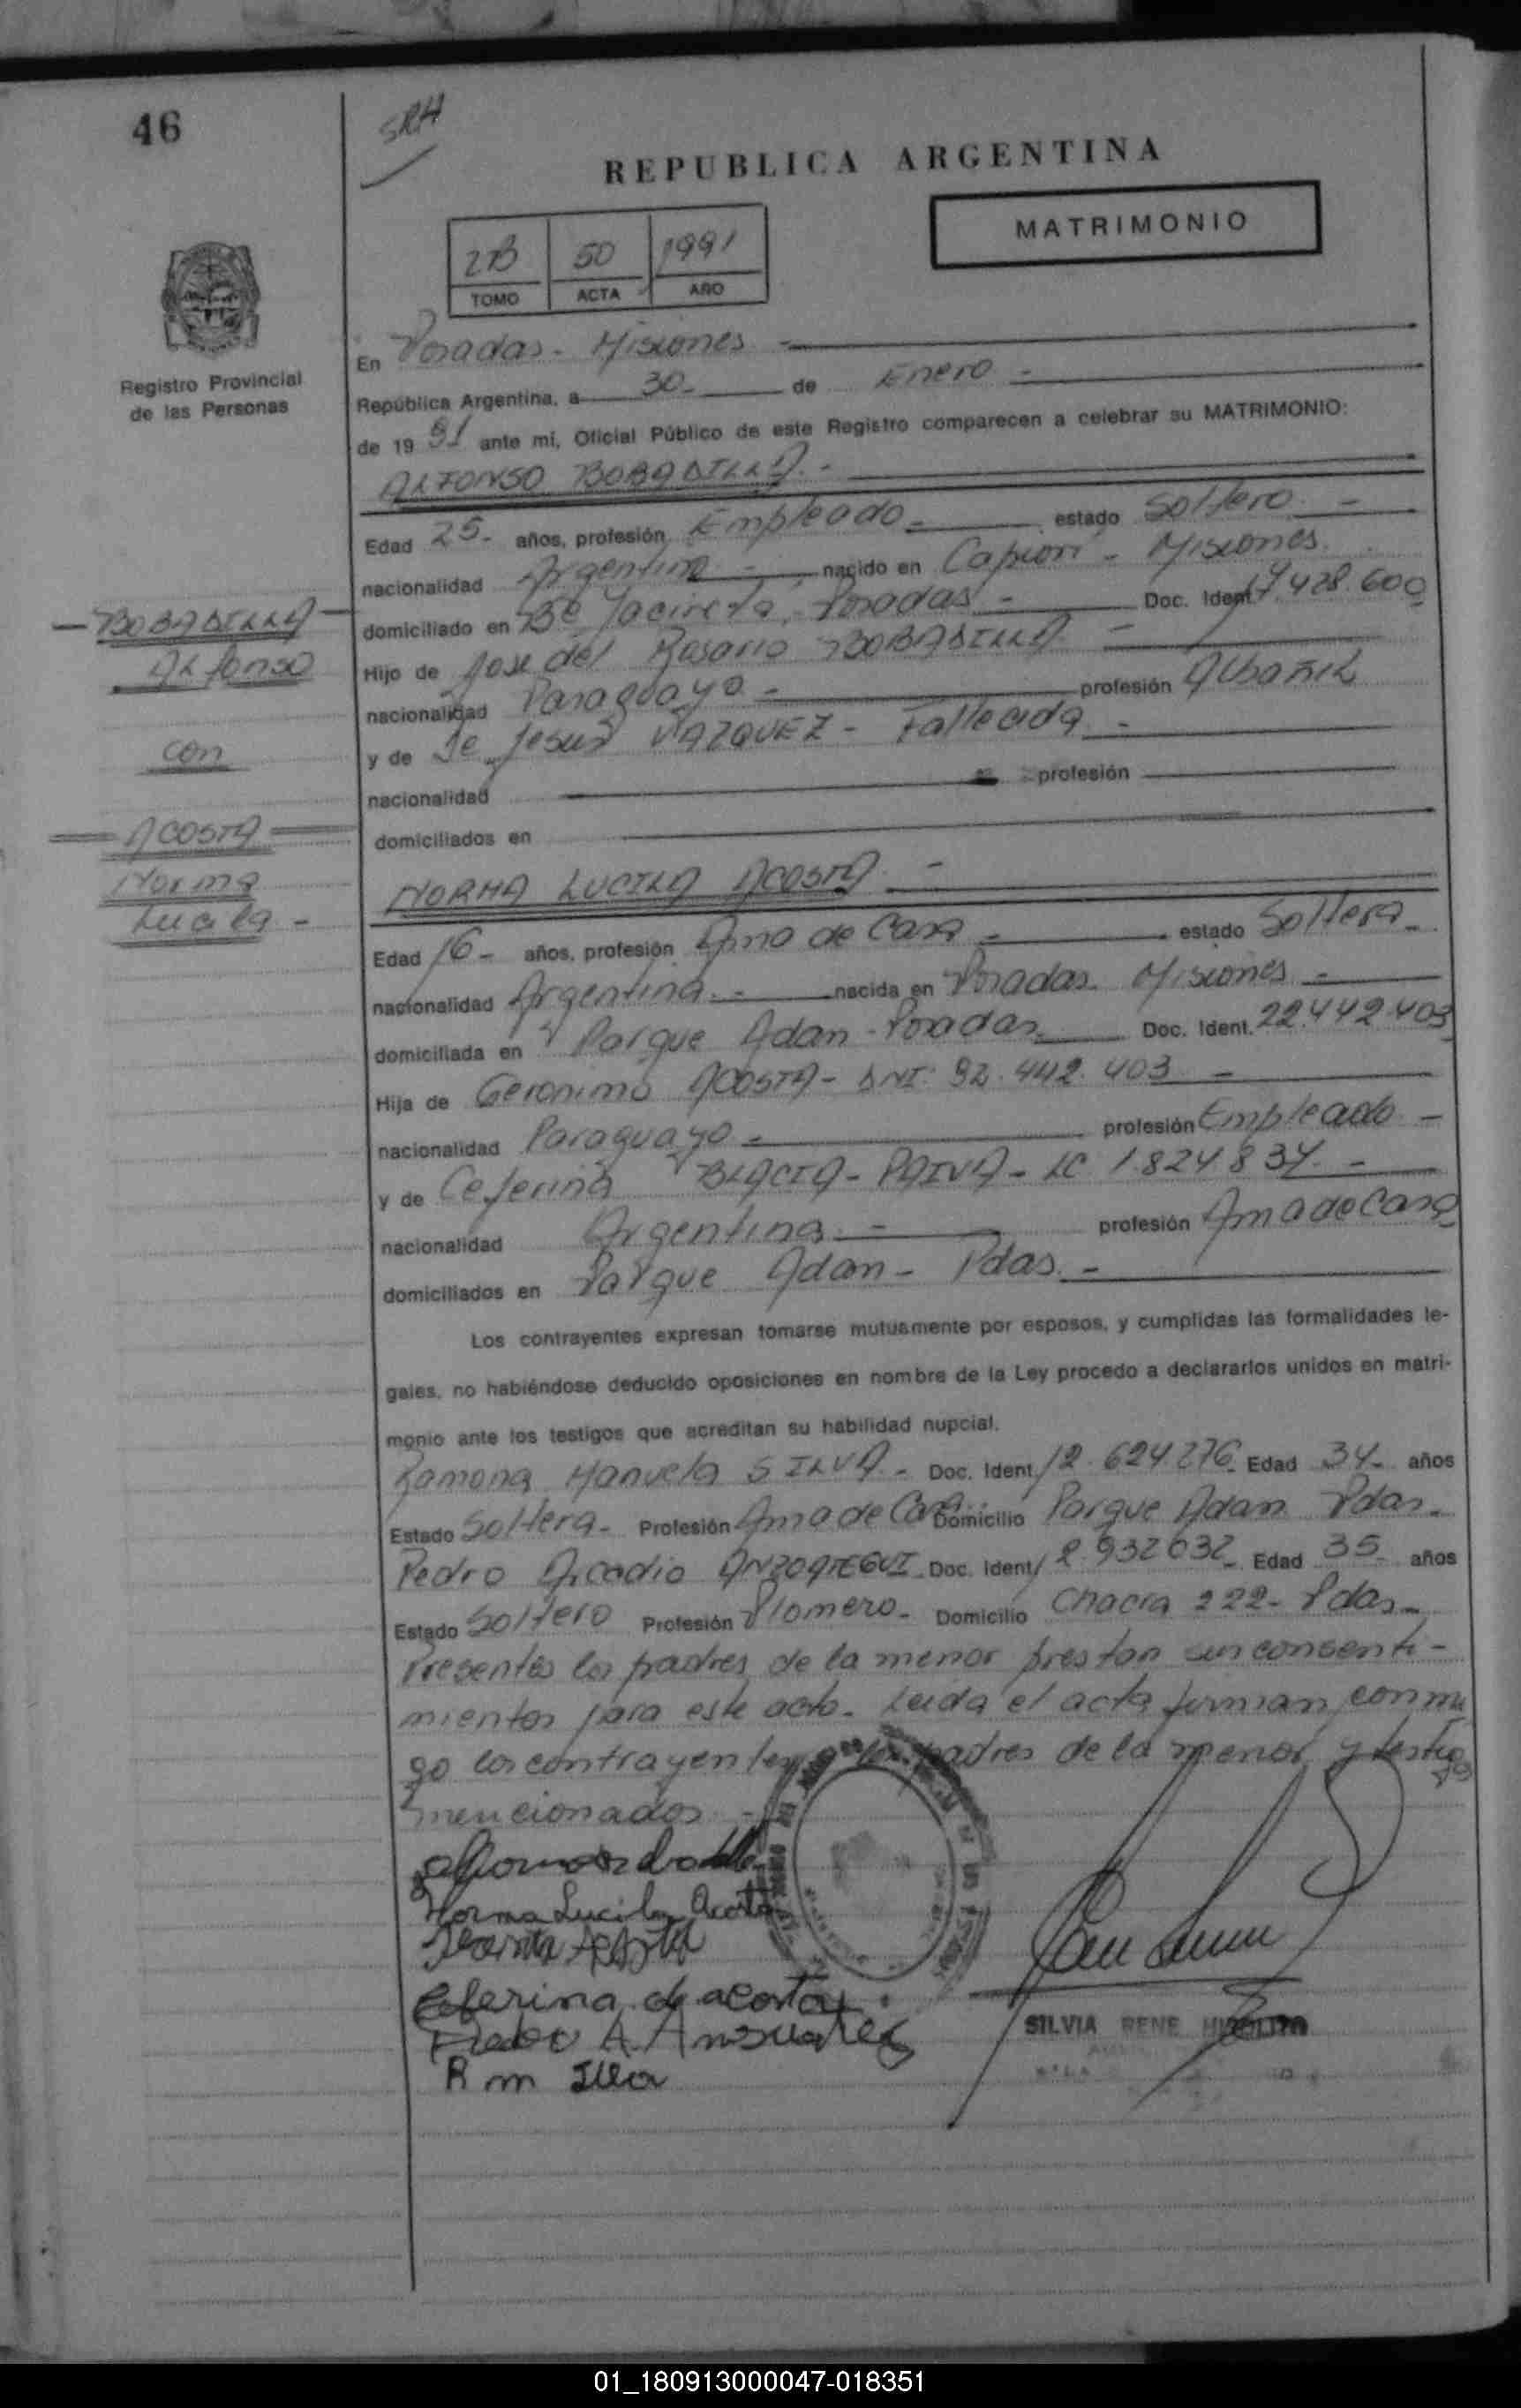 46
SRH
REPUBLICA ARGENTINA
MATRIMONIO
2B 50 1991
TOMO ACTA AÑO
Registro Provincial
de las Personas
En Posadas - Misiones -
República Argentina, a 30- de Enero -
de 19 91 ante mí, Oficial Público de este Registro comparecen a celebrar su MATRIMONIO:
ALFONSO BOBADILLA. -
Edad 25- años, profesión Empleado - estado Soltero -
nacionalidad Argentina - nacido en Capiovi - Misiones.
domiciliado en Bº Yacireta, Posadas - Doc. Ident. 17.428.600
Hijo de Jose del Rosario BOBADILLA -
nacionalidad Paraguayo - profesión Albañil
y de De Jesus VAZQUEZ - Fallecida -
nacionalidad profesión
domiciliados en
BOBADILLA
Alfonso
con
ACOSTA
Norma
Lucila -
NORMA LUCILA ACOSTA -
Edad 16- años, profesión Ama de Casa - estado Soltera -
nacionalidad Argentina. - nacida en Posadas Misiones -
domiciliada en Parque Adan - Posadas Doc. Ident. 22.442.403
Hija de Geronimo ACOSTA - DNI: 92.442.403 -
nacionalidad Paraguayo - profesión Empleado -
y de Ceferina BLACIA - PAIVA - LC 1.824.834. -
nacionalidad Argentina. - profesión Ama de Casa
domiciliados en Parque Adan - Pdas. -
Los contrayentes expresan tomarse mutuamente por esposos, y cumplidas las formalidades le-
gales, no habiéndose deducido oposiciones en nombre de la Ley procedo a declararlos unidos en matri-
monio ante los testigos que acreditan su habilidad nupcial.
Ramona Manuela SILVA - Doc. Ident. 12.624.276 Edad 34- años
Estado Soltera - Profesión Ama de Casa Domicilio Parque Adan Pdas.
Pedro Arcadio ANZOATEGUI Doc. Ident. 12.932632 Edad 35 años
Estado Soltero Profesión Plomero - Domicilio Chacra 222- Pdas -
Presentes los padres de la menor prestan sus consenti-
mientos para este acto. Leida el acta firman conmi
go los contrayentes, los padres de la menor y testigos
mencionados -
Norma Lucila Acosta
Acosta
Ceferina de acosta
Pedro A. Ansuateg
R m Silva
SILVIA RENE HIPOLITO
01_180913000047-018351